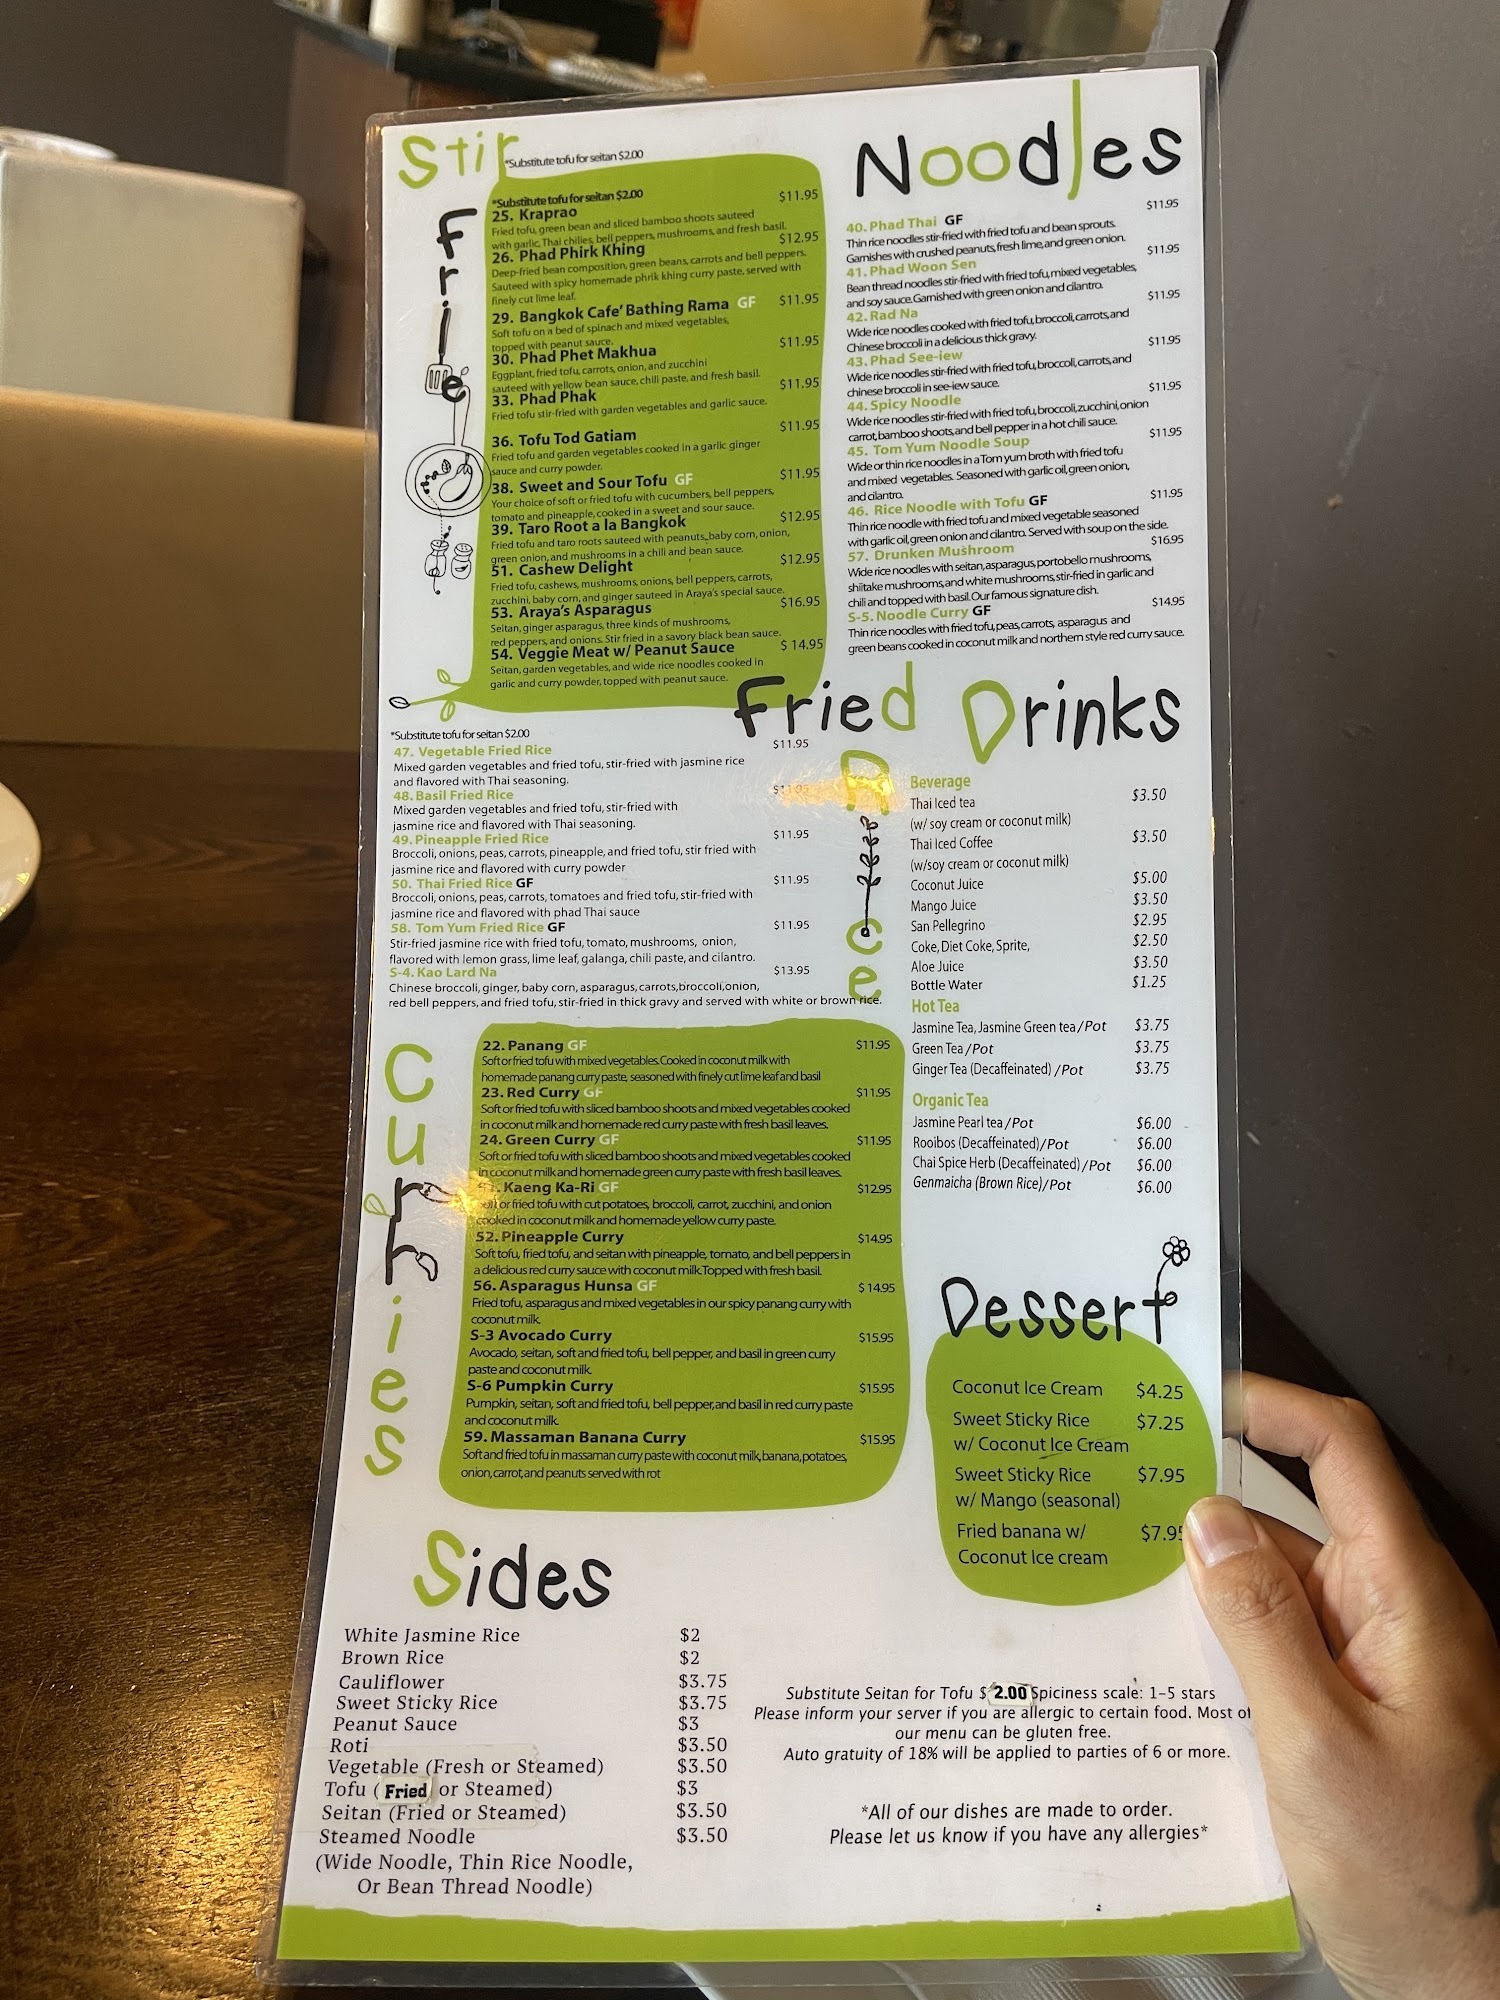 Stir
*Substitute tofu for seitan $2.00
Fried
*Substitute tofu for seitan $2.00
25. Kraprao $11.95
Fried tofu, green bean and sliced bamboo shoots sauteed
with garlic, Thai chilies, bell peppers, mushrooms, and fresh basil.
26. Phad Phirk Khing $12.95
Deep-fried bean composition, green beans, carrots and bell peppers.
Sauteed with spicy homemade phrik khing curry paste, served with
finely cut lime leaf.
29. Bangkok Cafe' Bathing Rama GF $11.95
Soft tofu on a bed of spinach and mixed vegetables,
topped with peanut sauce.
30. Phad Phet Makhua $11.95
Eggplant, fried tofu, carrots, onion, and zucchini
sauteed with yellow bean sauce, chili paste, and fresh basil.
33. Phad Phak $11.95
Fried tofu stir-fried with garden vegetables and garlic sauce.
36. Tofu Tod Gatiam $11.95
Fried tofu and garden vegetables cooked in a garlic ginger
sauce and curry powder.
38. Sweet and Sour Tofu GF $11.95
Your choice of soft or fried tofu with cucumbers, bell peppers,
tomato and pineapple, cooked in a sweet and sour sauce.
39. Taro Root a la Bangkok $12.95
Fried tofu and taro roots sauteed with peanuts, baby corn, onion,
green onion, and mushrooms in a chili and bean sauce.
51. Cashew Delight $12.95
Fried tofu, cashews, mushrooms, onions, bell peppers, carrots,
zucchini, baby corn, and ginger sauteed in Araya's special sauce.
53. Araya's Asparagus $16.95
Seitan, ginger asparagus, three kinds of mushrooms,
red peppers, and onions. Stir fried in a savory black bean sauce.
54. Veggie Meat w/ Peanut Sauce $ 14.95
Seitan, garden vegetables, and wide rice noodles cooked in
garlic and curry powder, topped with peanut sauce.
Noodles
40. Phad Thai GF $11.95
Thin rice noodles stir-fried with fried tofu and bean sprouts.
Garnishes with crushed peanuts, fresh lime, and green onion.
41. Phad Woon Sen $11.95
Bean thread noodles stir-fried with fried tofu, mixed vegetables,
and soy sauce. Garnished with green onion and cilantro.
42. Rad Na $11.95
Wide rice noodles cooked with fried tofu, broccoli, carrots, and
Chinese broccoli in a delicious thick gravy.
43. Phad See-iew $11.95
Wide rice noodles stir-fried with fried tofu, broccoli, carrots, and
chinese broccoli in see-iew sauce.
44. Spicy Noodle $11.95
Wide rice noodles stir-fried with fried tofu, broccoli, zucchini, onion
carrot, bamboo shoots, and bell pepper in a hot chili sauce.
45. Tom Yum Noodle Soup $11.95
Wide or thin rice noodles in a Tom yum broth with fried tofu
and mixed vegetables. Seasoned with garlic oil, green onion,
and cilantro.
46. Rice Noodle with Tofu GF $11.95
Thin rice noodle with fried tofu and mixed vegetable seasoned
with garlic oil, green onion and cilantro. Served with soup on the side.
57. Drunken Mushroom $16.95
Wide rice noodles with seitan, asparagus, portobello mushrooms,
shiitake mushrooms, and white mushrooms stir-fried in garlic and
chili and topped with basil. Our famous signature dish.
S-5. Noodle Curry GF $14.95
Thin rice noodles with fried tofu, peas, carrots, asparagus and
green beans cooked in coconut milk and northern style red curry sauce.
Fried Rice
*Substitute tofu for seitan $2.00
47. Vegetable Fried Rice $11.95
Mixed garden vegetables and fried tofu, stir-fried with jasmine rice
and flavored with Thai seasoning.
48. Basil Fried Rice $11.95
Mixed garden vegetables and fried tofu, stir-fried with
jasmine rice and flavored with Thai seasoning.
49. Pineapple Fried Rice $11.95
Broccoli, onions, peas, carrots, pineapple, and fried tofu, stir fried with
jasmine rice and flavored with curry powder
50. Thai Fried Rice GF $11.95
Broccoli, onions, peas, carrots, tomatoes and fried tofu, stir-fried with
jasmine rice and flavored with phad Thai sauce
58. Tom Yum Fried Rice GF $11.95
Stir-fried jasmine rice with fried tofu, tomato, mushrooms, onion,
flavored with lemon grass, lime leaf, galanga, chili paste, and cilantro.
S-4. Kao Lard Na $13.95
Chinese broccoli, ginger, baby corn, asparagus, carrots, broccoli, onion,
red bell peppers, and fried tofu, stir-fried in thick gravy and served with white or brown rice.
Drinks
Beverage
Thai Iced tea $3.50
(w/ soy cream or coconut milk)
Thai Iced Coffee $3.50
(w/soy cream or coconut milk)
Coconut Juice $5.00
Mango Juice $3.50
San Pellegrino $2.95
Coke, Diet Coke, Sprite, $2.50
Aloe Juice $3.50
Bottle Water $1.25
Hot Tea
Jasmine Tea, Jasmine Green tea/Pot $3.75
Green Tea/Pot $3.75
Ginger Tea (Decaffeinated) /Pot $3.75
Organic Tea
Jasmine Pearl tea/Pot $6.00
Rooibos (Decaffeinated)/Pot $6.00
Chai Spice Herb (Decaffeinated)/Pot $6.00
Genmaicha (Brown Rice)/Pot $6.00
Curries
22. Panang GF $11.95
Soft or fried tofu with mixed vegetables. Cooked in coconut milk with
homemade panang curry paste, seasoned with finely cut lime leaf and basil
23. Red Curry GF $11.95
Soft or fried tofu with sliced bamboo shoots and mixed vegetables cooked
in coconut milk and homemade red curry paste with fresh basil leaves.
24. Green Curry GF $11.95
Soft or fried tofu with sliced bamboo shoots and mixed vegetables cooked
in coconut milk and homemade green curry paste with fresh basil leaves.
Kaeng Ka-Ri GF $12.95
Soft or fried tofu with cut potatoes, broccoli, carrot, zucchini, and onion
cooked in coconut milk and homemade yellow curry paste.
52. Pineapple Curry $14.95
Soft tofu, fried tofu, and seitan with pineapple, tomato, and bell peppers in
a delicious red curry sauce with coconut milk. Topped with fresh basil.
56. Asparagus Hunsa GF $ 14.95
Fried tofu, asparagus and mixed vegetables in our spicy panang curry with
coconut milk.
S-3 Avocado Curry $15.95
Avocado, seitan, soft and fried tofu, bell pepper, and basil in green curry
paste and coconut milk.
S-6 Pumpkin Curry $15.95
Pumpkin, seitan, soft and fried tofu, bell pepper, and basil in red curry paste
and coconut milk.
59. Massaman Banana Curry $15.95
Soft and fried tofu in massaman curry paste with coconut milk, banana, potatoes,
onion, carrot, and peanuts served with rot
Dessert
Coconut Ice Cream $4.25
Sweet Sticky Rice $7.25
w/ Coconut Ice Cream
Sweet Sticky Rice $7.95
w/ Mango (seasonal)
Fried banana w/ $7.95
Coconut Ice cream
Sides
White Jasmine Rice $2
Brown Rice $2
Cauliflower $3.75
Sweet Sticky Rice $3.75
Peanut Sauce $3
Roti $3.50
Vegetable (Fresh or Steamed) $3.50
Tofu (Fried or Steamed) $3
Seitan (Fried or Steamed) $3.50
Steamed Noodle $3.50
(Wide Noodle, Thin Rice Noodle,
Or Bean Thread Noodle)
Substitute Seitan for Tofu $2.00 Spiciness scale: 1-5 stars
Please inform your server if you are allergic to certain food. Most of
our menu can be gluten free.
Auto gratuity of 18% will be applied to parties of 6 or more.
*All of our dishes are made to order.
Please let us know if you have any allergies*